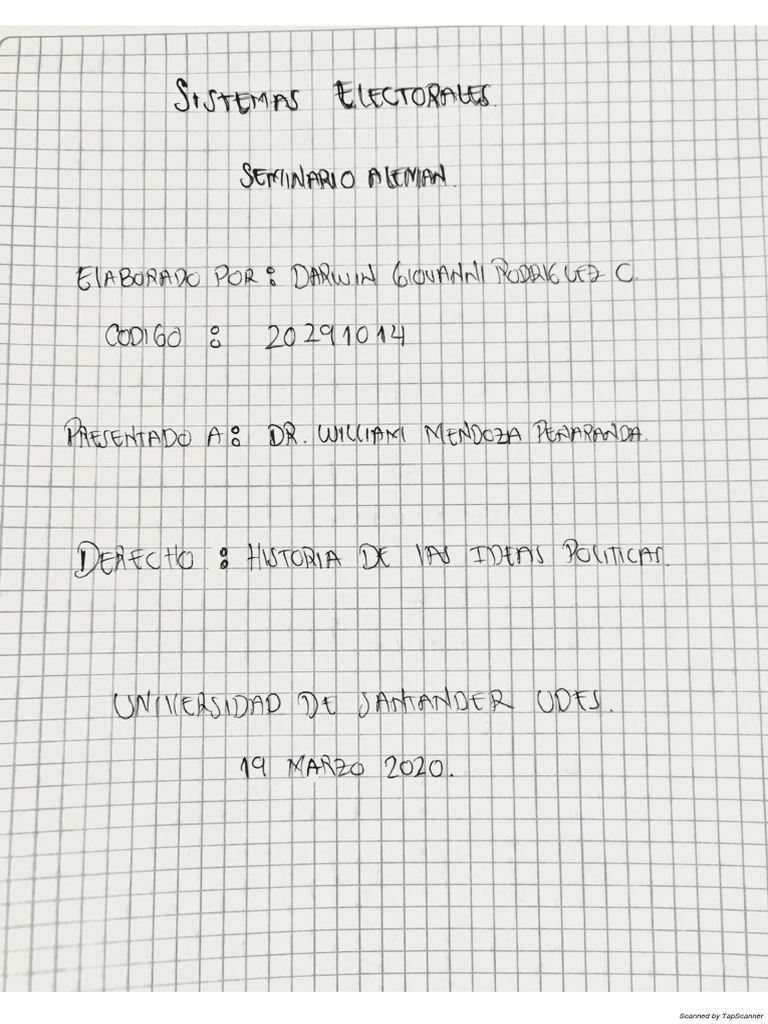 SISTEMAS ELECTORALES.
SEMINARIO ALEMAN.
ELABORADO POR: DARWIN GIOVANNI RODRIGUEZ C.
CODIGO : 20291014
PRESENTADO A: DR. WILLIAM MENDOZA PEÑARANDA.
DERECHO : HISTORIA DE LAS IDEAS POLITICAS.
UNIVERSIDAD DE SANTANDER UDES.
19 MARZO 2020.
Scanned by TapScanner